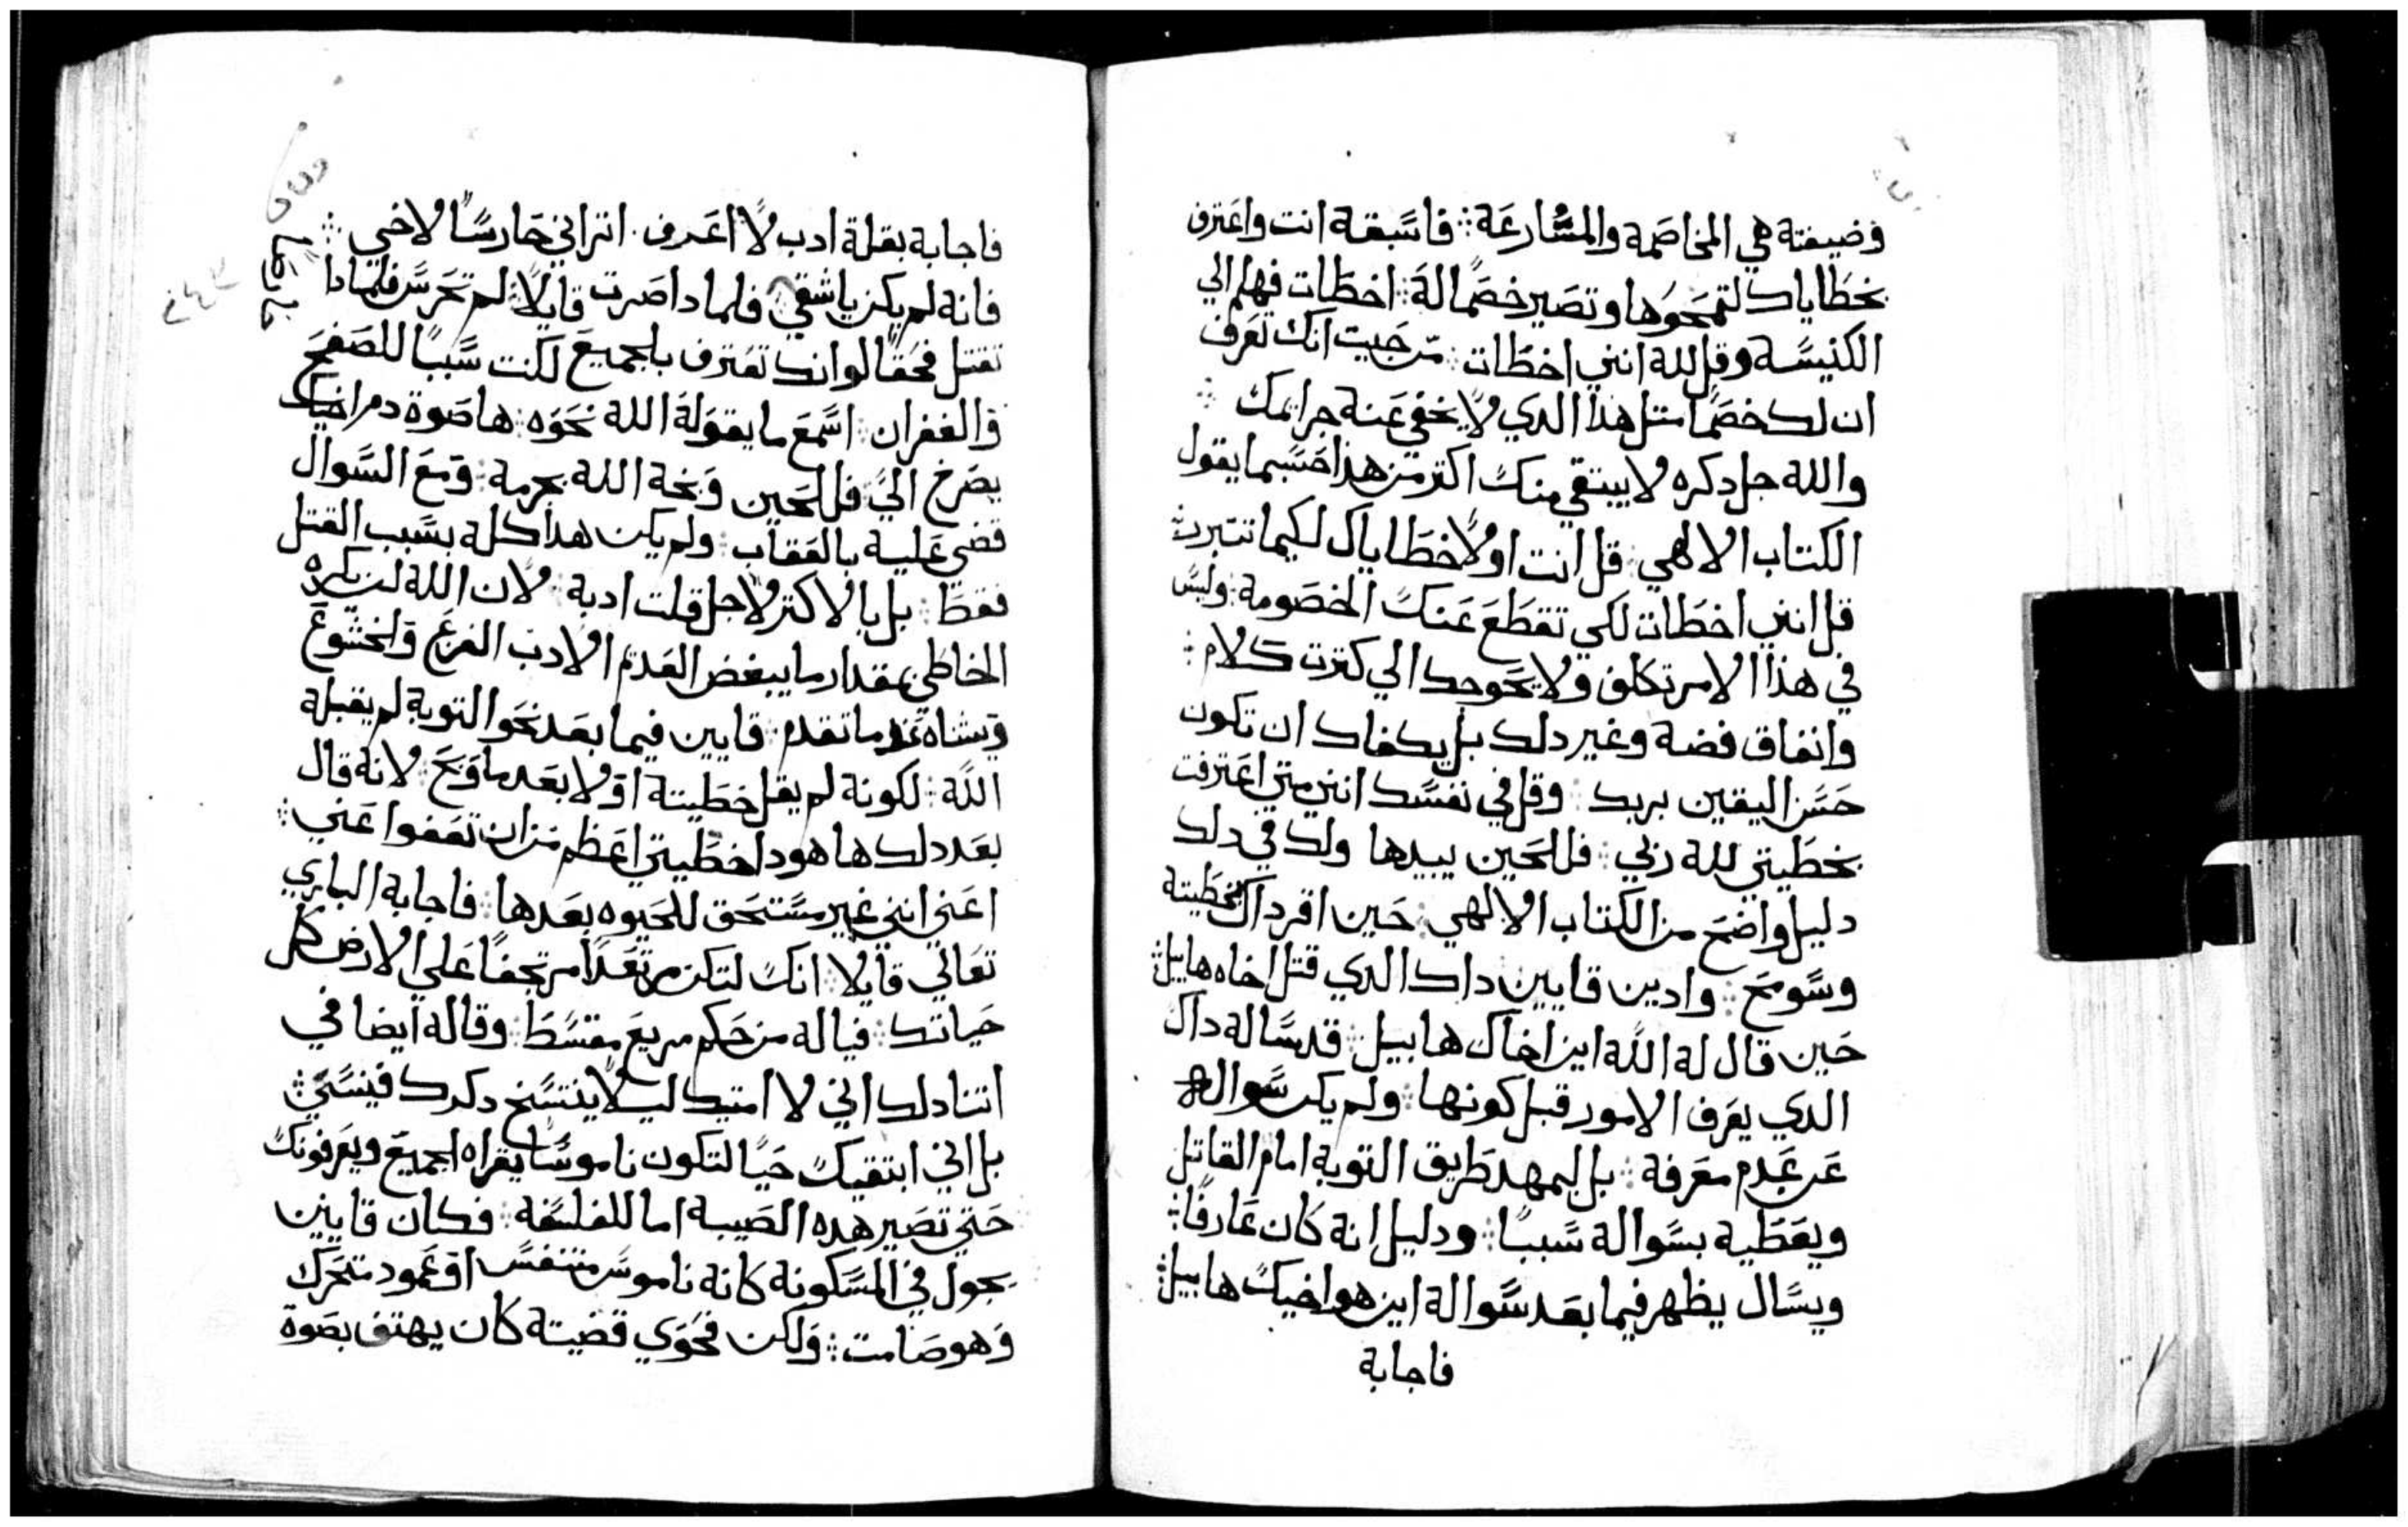 وضيفته هي المخاصمة والمسارعة فاسبقه انت واعترف
بخطاياك لتمحوها وتصير خصمًا له اخطات فهلم الي
الكنيسة وقل لله انني اخطات من حيت انك تعرف
ان لك خصمًا متل هذا الدي لا يخفي عنه جرايمك
والله جل دكره لا يبتقي منك اكتر من هذا حسبما يقول
الكتاب الالهي قل انت اولا خطاياك لكيما تتبرر
قل انني اخطات لكي تقطع عنك الخصومة وليس
في هذا الامر تكلف ولا يحوجك الي كترت كلام
وانفاق فضة وغير دلك بل يكفاك ان تكون
حسن اليقين بربك وقل في نفسك انني متي اعترفت
بخطيتي لله ربي فللحين يبيدها ولك في دلك
دليل واضح من الكتاب الالهي حين اقر داك بخطيته
وسومح وادين قايين داك الدي قتل اخاه هابيل
حين قال له الله اين اخاك هابيل قد ساله داك
الدي يعرف الامور قبل كونها ولم يكن سواله
عن عدم معرفة بل ليمهد طريق التوبة امام القاتل
ويعطيه بسواله سببًا ودليل انه كان عارفًا
ويسال يظهر فيما بعد سواله اين هو اخيك هابيل
فاجابة
فاجابة بقلة ادب لا اعرف اتراني حارسًا لاخي
فانه لم يكن ياشقي فلمادا صرت قايلا لم تحرس فلمادا
تقتل فحقًا لو انك تعترف بالجميع لكنت سببًا للصفح
والغفران اسمع ما يقوله الله نحوه ها صوة دم اخيك
يصرخ الي فللحين وبخه الله بجرمه ومع السوال
قضي عليه بالعقاب ولم يكن هدا كله بسبب القتل
فقط بل بالاكتر لاجل قلت ادبه لان الله لن يكره
الخاطي بمقدار ما يبغض العدم الادب الفزع والخشوع
وتشاه عدما تقدم قايين فيما بعد نحو التوبة لم يقبله
الله لكونه لم يقل خطيته اولا بعدما وبخ لانه قال
بعد دلك ها هودا خطيتي اعظم من ان تعفوا عني
اعني انني غير مستحق للحيوه بعدها فاجابه الباري
تعالي قايلا انك لتكن مرتعدًا مرتجفًا علي الارض كل
حياتك فياله من حكم مريع مقسط وقاله ايضا في
اتنا دلك اني لا امتيك ليلا ينتسخ دكرك فينسي
بل اني ابتقيك حيًا لتكون ناموسًا يقراه الجميع ويعرفونك
حتي تصير هده المصيبة اما للفلسفة فكان قايين
يجول في المسكونة كانه ناموس متنفس او عمود متحرك
وهو صامت ولكن فحوي قضيته كان يهتف بصوة